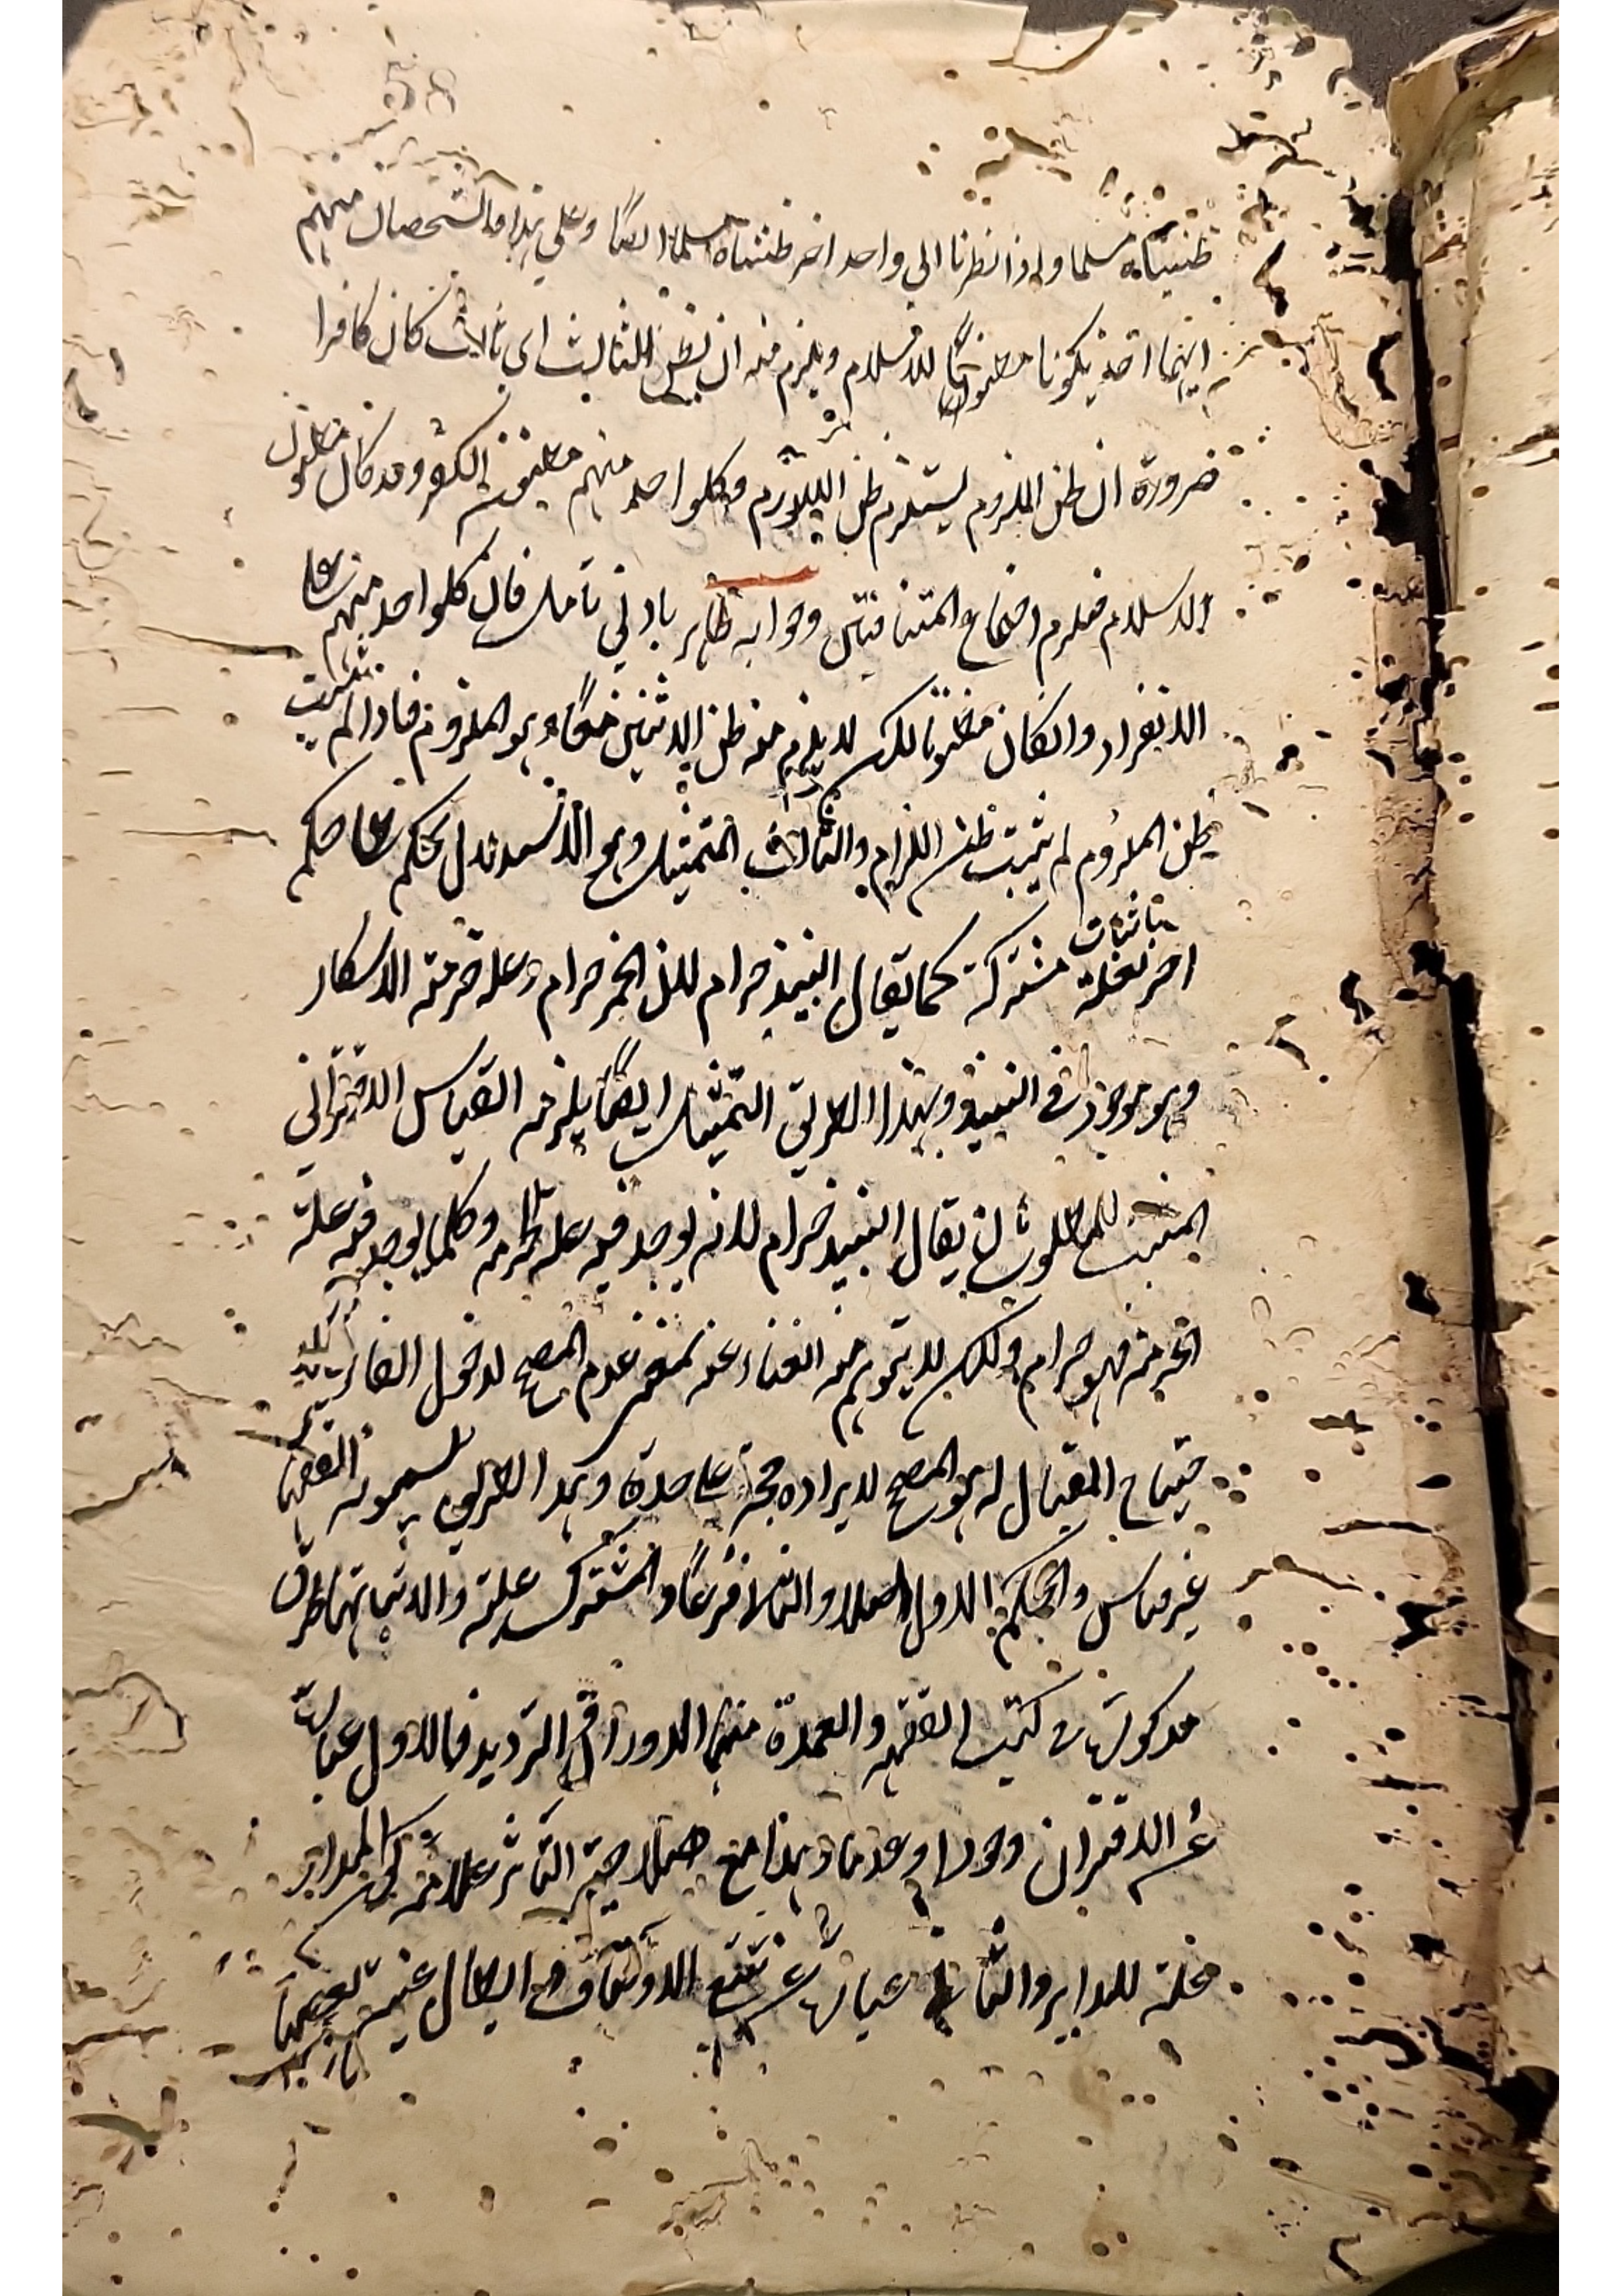 58
ظنناه مسلما واذا نظرنا الى واحد اخر ظنناه مسلما ايضا وعلى هذا فالشخصان منهم
ايهما اخذ يكونا مظنونا للاسلام ويلزم منه ان يظن الثالث اى ثالث كان كافرا
ضرورة ان ظن الملزوم يستلزم ظن اللازم وكلواحد منهم مظنون الكفر وقد كان مظنون
الاسلام فيلزم اجتماع المتنافيين وجوابه ظاهر بادنى تامل فان كلواحد منهم على
الانفراد وان كان مظنونا لكن لا يلزم منه ظن الاثنين معا وهو الملزوم فاذا لم يثبت
ظن الملزوم لم يثبت ظن اللازم والثالث التمثيل وهو الاستدلال بحكم على حكم
اخر لعلة مشتركة كما يقال النبيذ حرام لان الخمر حرام وعلة حرمته الاسكار
باثبات
وهو موجود فى النبيذ وبهذا الطريق التمثيل ايضا يلزمه القياس الاقترانى
المثبت للمطلوب بان يقال النبيذ حرام لانه يوجد فيه علة الحرمة وكلما يوجد فيه علة
الحرمة فهو حرام ولكن لا يتوهم منه الغناء عنه عدم المصحح لدخول الفاء
احتياج المقيال له هو المصحح لايراده حجة على حدة وهذا الطريق يسمونه الفقهاء
غير قياس والحكم الاول اصلا والثانى فرعا والمشترك علة والاثباتها طرق
مذكورة فى كتب الفقه والعمدة منها الدوران والترديد فالاول عبارة
عن الاقتران وجودا وعدما وهذا مع صلاحية التاثير علامة كون المدار
علة للداير والثانى عبارة عن تتبع الاوصاف وابطال علية بعضها